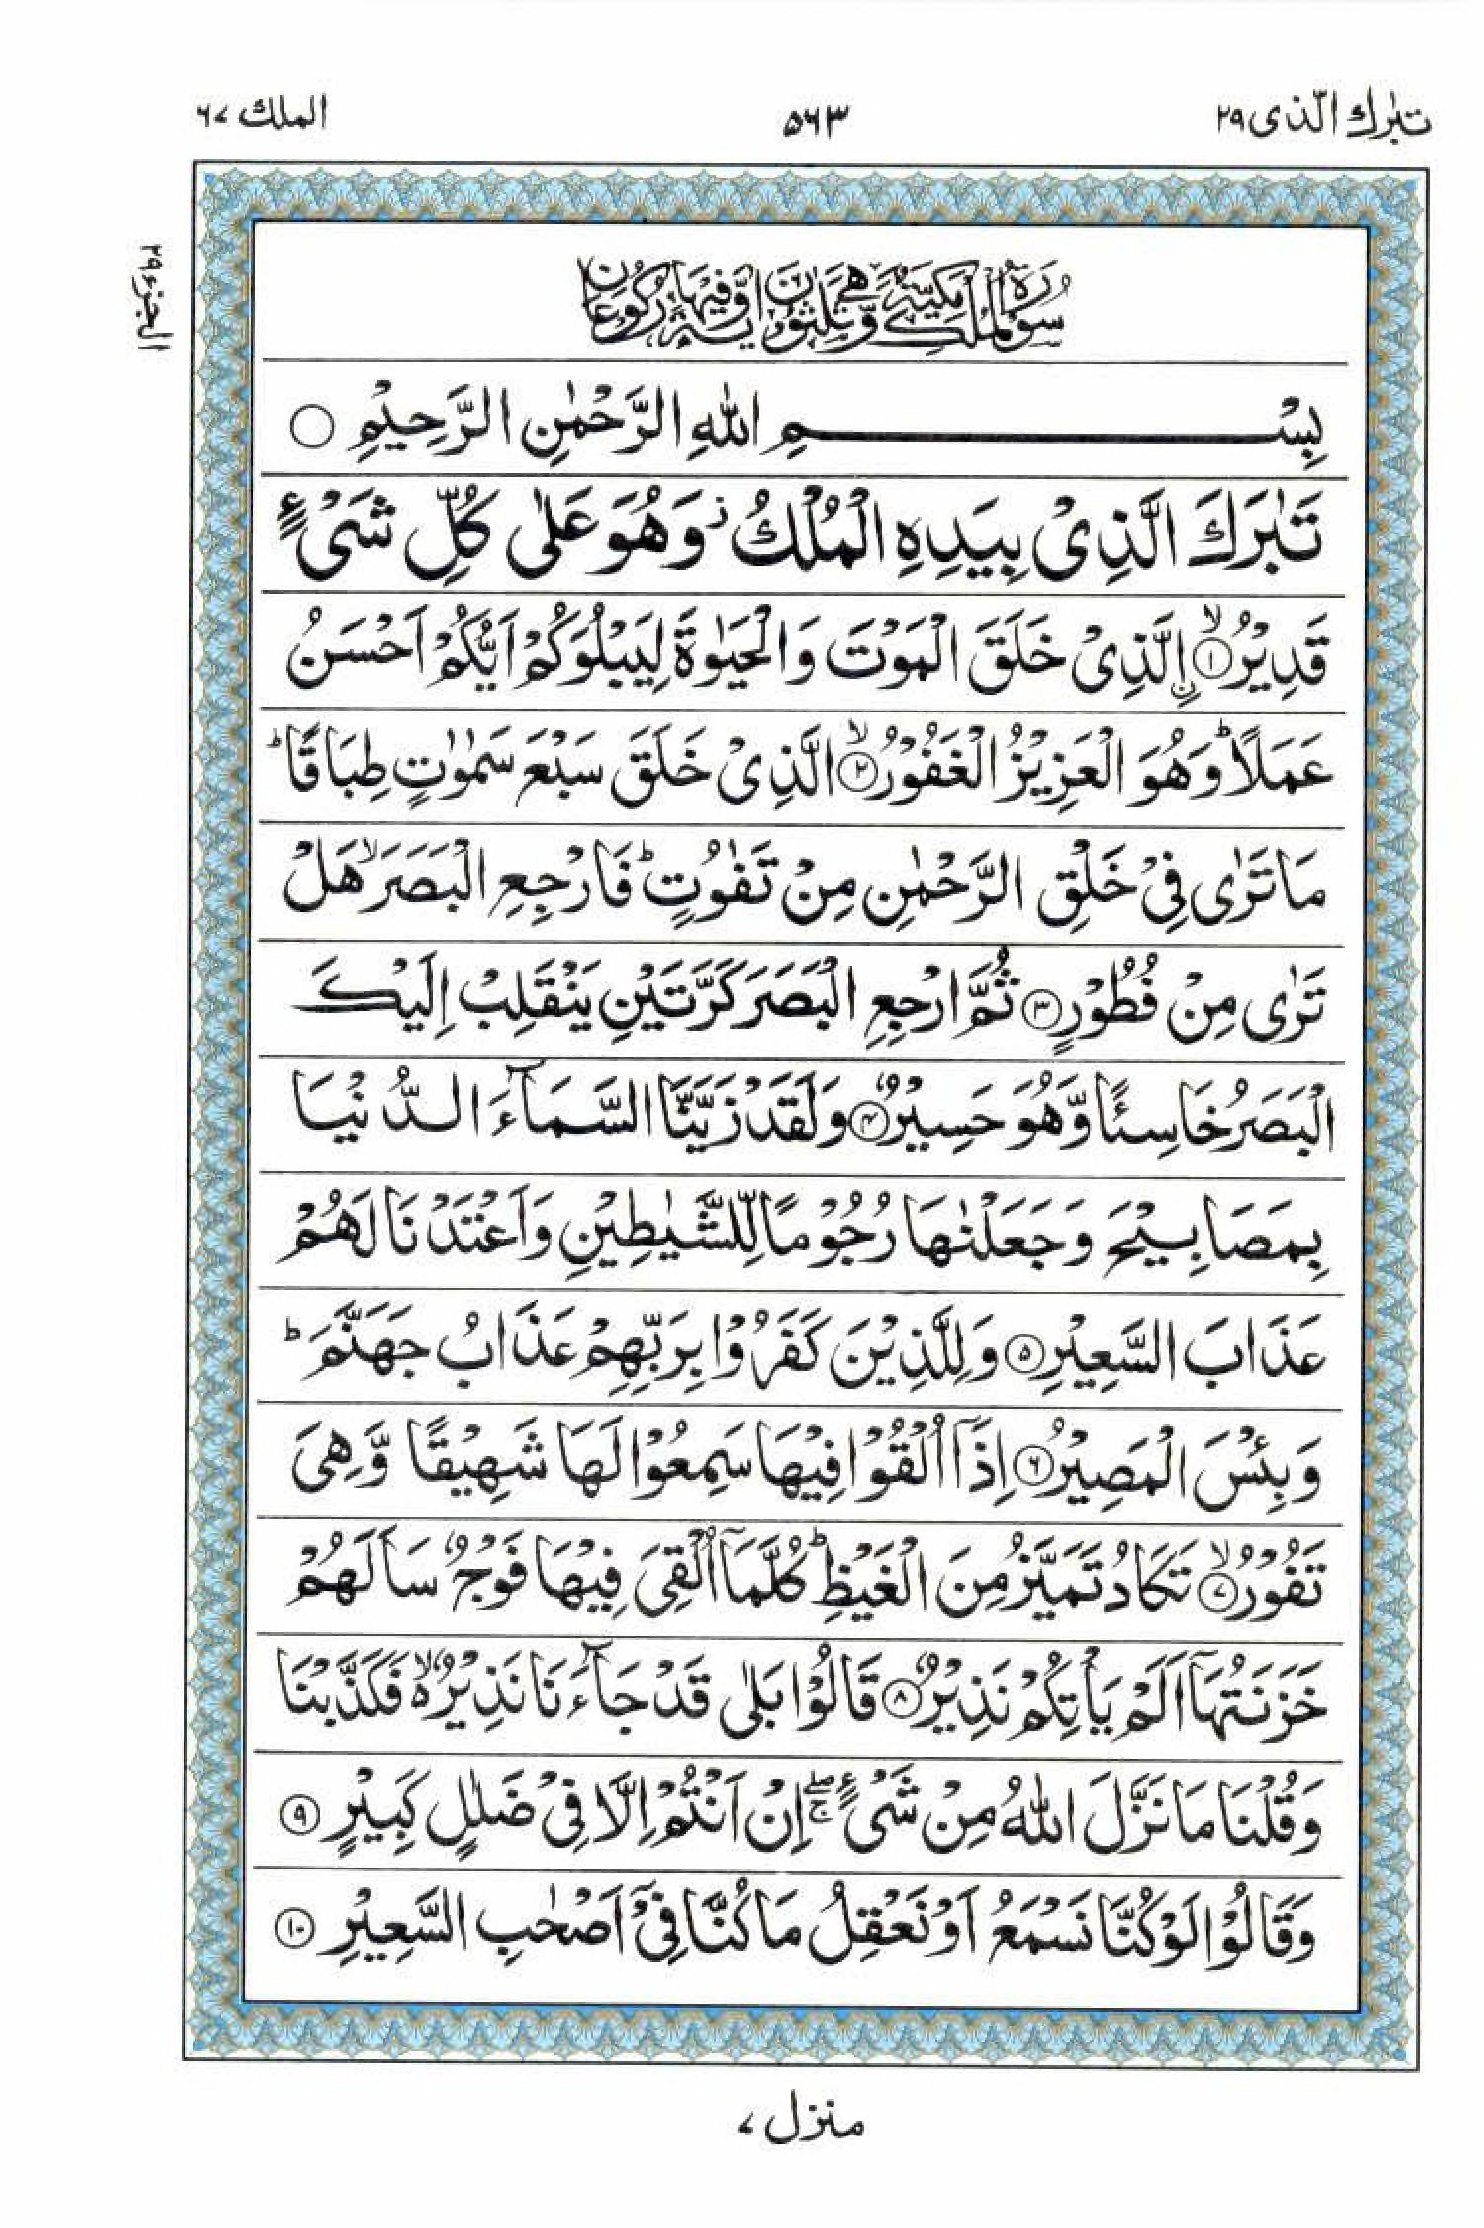 تبٰرك الّذی ۲۹
۵۶۳
الملك ۶۷
الجزء ۲۹
سُوْرَةُ الْمُلْكِ مَكِّيَّةٌ وَّهِيَ ثَلٰثُوْنَ اٰيَةً وَّفِيْهَا رُكُوْعَانِ
بِسْمِ اللّٰهِ الرَّحْمٰنِ الرَّحِيْمِ ○
تَبٰرَكَ الَّذِیْ بِيَدِهِ الْمُلْكُ ؗ وَهُوَ عَلٰی كُلِّ شَیْءٍ
قَدِيْرُ ۙ﴿۱﴾ اۨلَّذِیْ خَلَقَ الْمَوْتَ وَالْحَيٰوةَ لِيَبْلُوَكُمْ اَيُّكُمْ اَحْسَنُ
عَمَلًا ؕ وَهُوَ الْعَزِيْزُ الْغَفُوْرُ ۙ﴿۲﴾ الَّذِیْ خَلَقَ سَبْعَ سَمٰوٰتٍ طِبَاقًا ؕ
مَا تَرٰی فِیْ خَلْقِ الرَّحْمٰنِ مِنْ تَفٰوُتٍ ؕ فَارْجِعِ الْبَصَرَ ۙ هَلْ
تَرٰی مِنْ فُطُوْرٍ ﴿۳﴾ ثُمَّ ارْجِعِ الْبَصَرَ كَرَّتَيْنِ يَنْقَلِبْ اِلَيْكَ
الْبَصَرُ خَاسِئًا وَّهُوَ حَسِيْرٌ ﴿۴﴾ وَلَقَدْ زَيَّنَّا السَّمَآءَ الدُّنْيَا
بِمَصَابِيْحَ وَجَعَلْنٰهَا رُجُوْمًا لِّلشَّيٰطِيْنِ وَاَعْتَدْنَا لَهُمْ
عَذَابَ السَّعِيْرِ ﴿۵﴾ وَلِلَّذِيْنَ كَفَرُوْا بِرَبِّهِمْ عَذَابُ جَهَنَّمَ ؕ
وَبِئْسَ الْمَصِيْرُ ﴿۶﴾ اِذَاۤ اُلْقُوْا فِيْهَا سَمِعُوْا لَهَا شَهِيْقًا وَّهِیَ
تَفُوْرُ ۙ﴿۷﴾ تَكَادُ تَمَيَّزُ مِنَ الْغَيْظِ ؕ كُلَّمَاۤ اُلْقِیَ فِيْهَا فَوْجٌ سَاَلَهُمْ
خَزَنَتُهَاۤ اَلَمْ يَاْتِكُمْ نَذِيْرٌ ﴿۸﴾ قَالُوْا بَلٰی قَدْ جَآءَنَا نَذِيْرٌ ۙ۬ فَكَذَّبْنَا
وَقُلْنَا مَا نَزَّلَ اللّٰهُ مِنْ شَیْءٍ ۖۚ اِنْ اَنْتُمْ اِلَّا فِیْ ضَلٰلٍ كَبِيْرٍ ﴿۹﴾
وَقَالُوْا لَوْ كُنَّا نَسْمَعُ اَوْ نَعْقِلُ مَا كُنَّا فِیْۤ اَصْحٰبِ السَّعِيْرِ ﴿۱۰﴾
منزل ۷